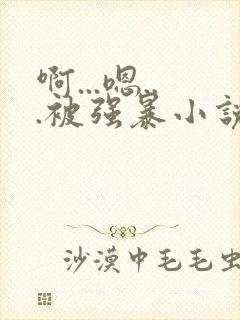 啊...嗯...
.被强暴小说
沙漠中毛毛虫